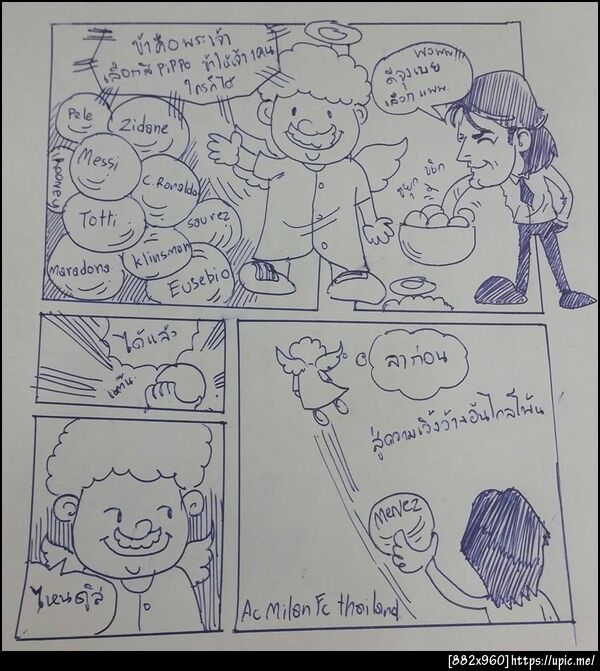 ข้าคือพระเจ้า
เลือกสิ PIPPO ข้าให้เจ้า 1 คน
ใครก็ได้
พวพพ!!!
ดีจุงเบย
เลือก แพพ.
Pele
Zidane
Messi
Rooney
C. Ronaldo
Totti
Saurez
Klinsman
Maradona
Eusebio
ขยุก ขยิก
ได้แล้ว
ไหนดูสิ
ลาก่อน
สู่ความเวิ้งว้างอันไกลโพ้น
Menez
Ac Milan Fc thailand
[882x960]https://upic.me/